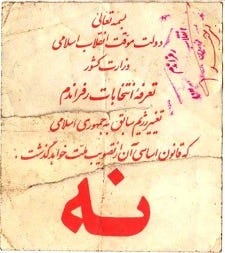 بسمه تعالی
دولت موقت انقلاب اسلامی
وزارت کشور
تعرفهٔ انتخابات رفراندم
تغییر رژیم سابق به جمهوری اسلامی
که قانون اساسی آن از تصویب ملت خواهد گذشت.
نه